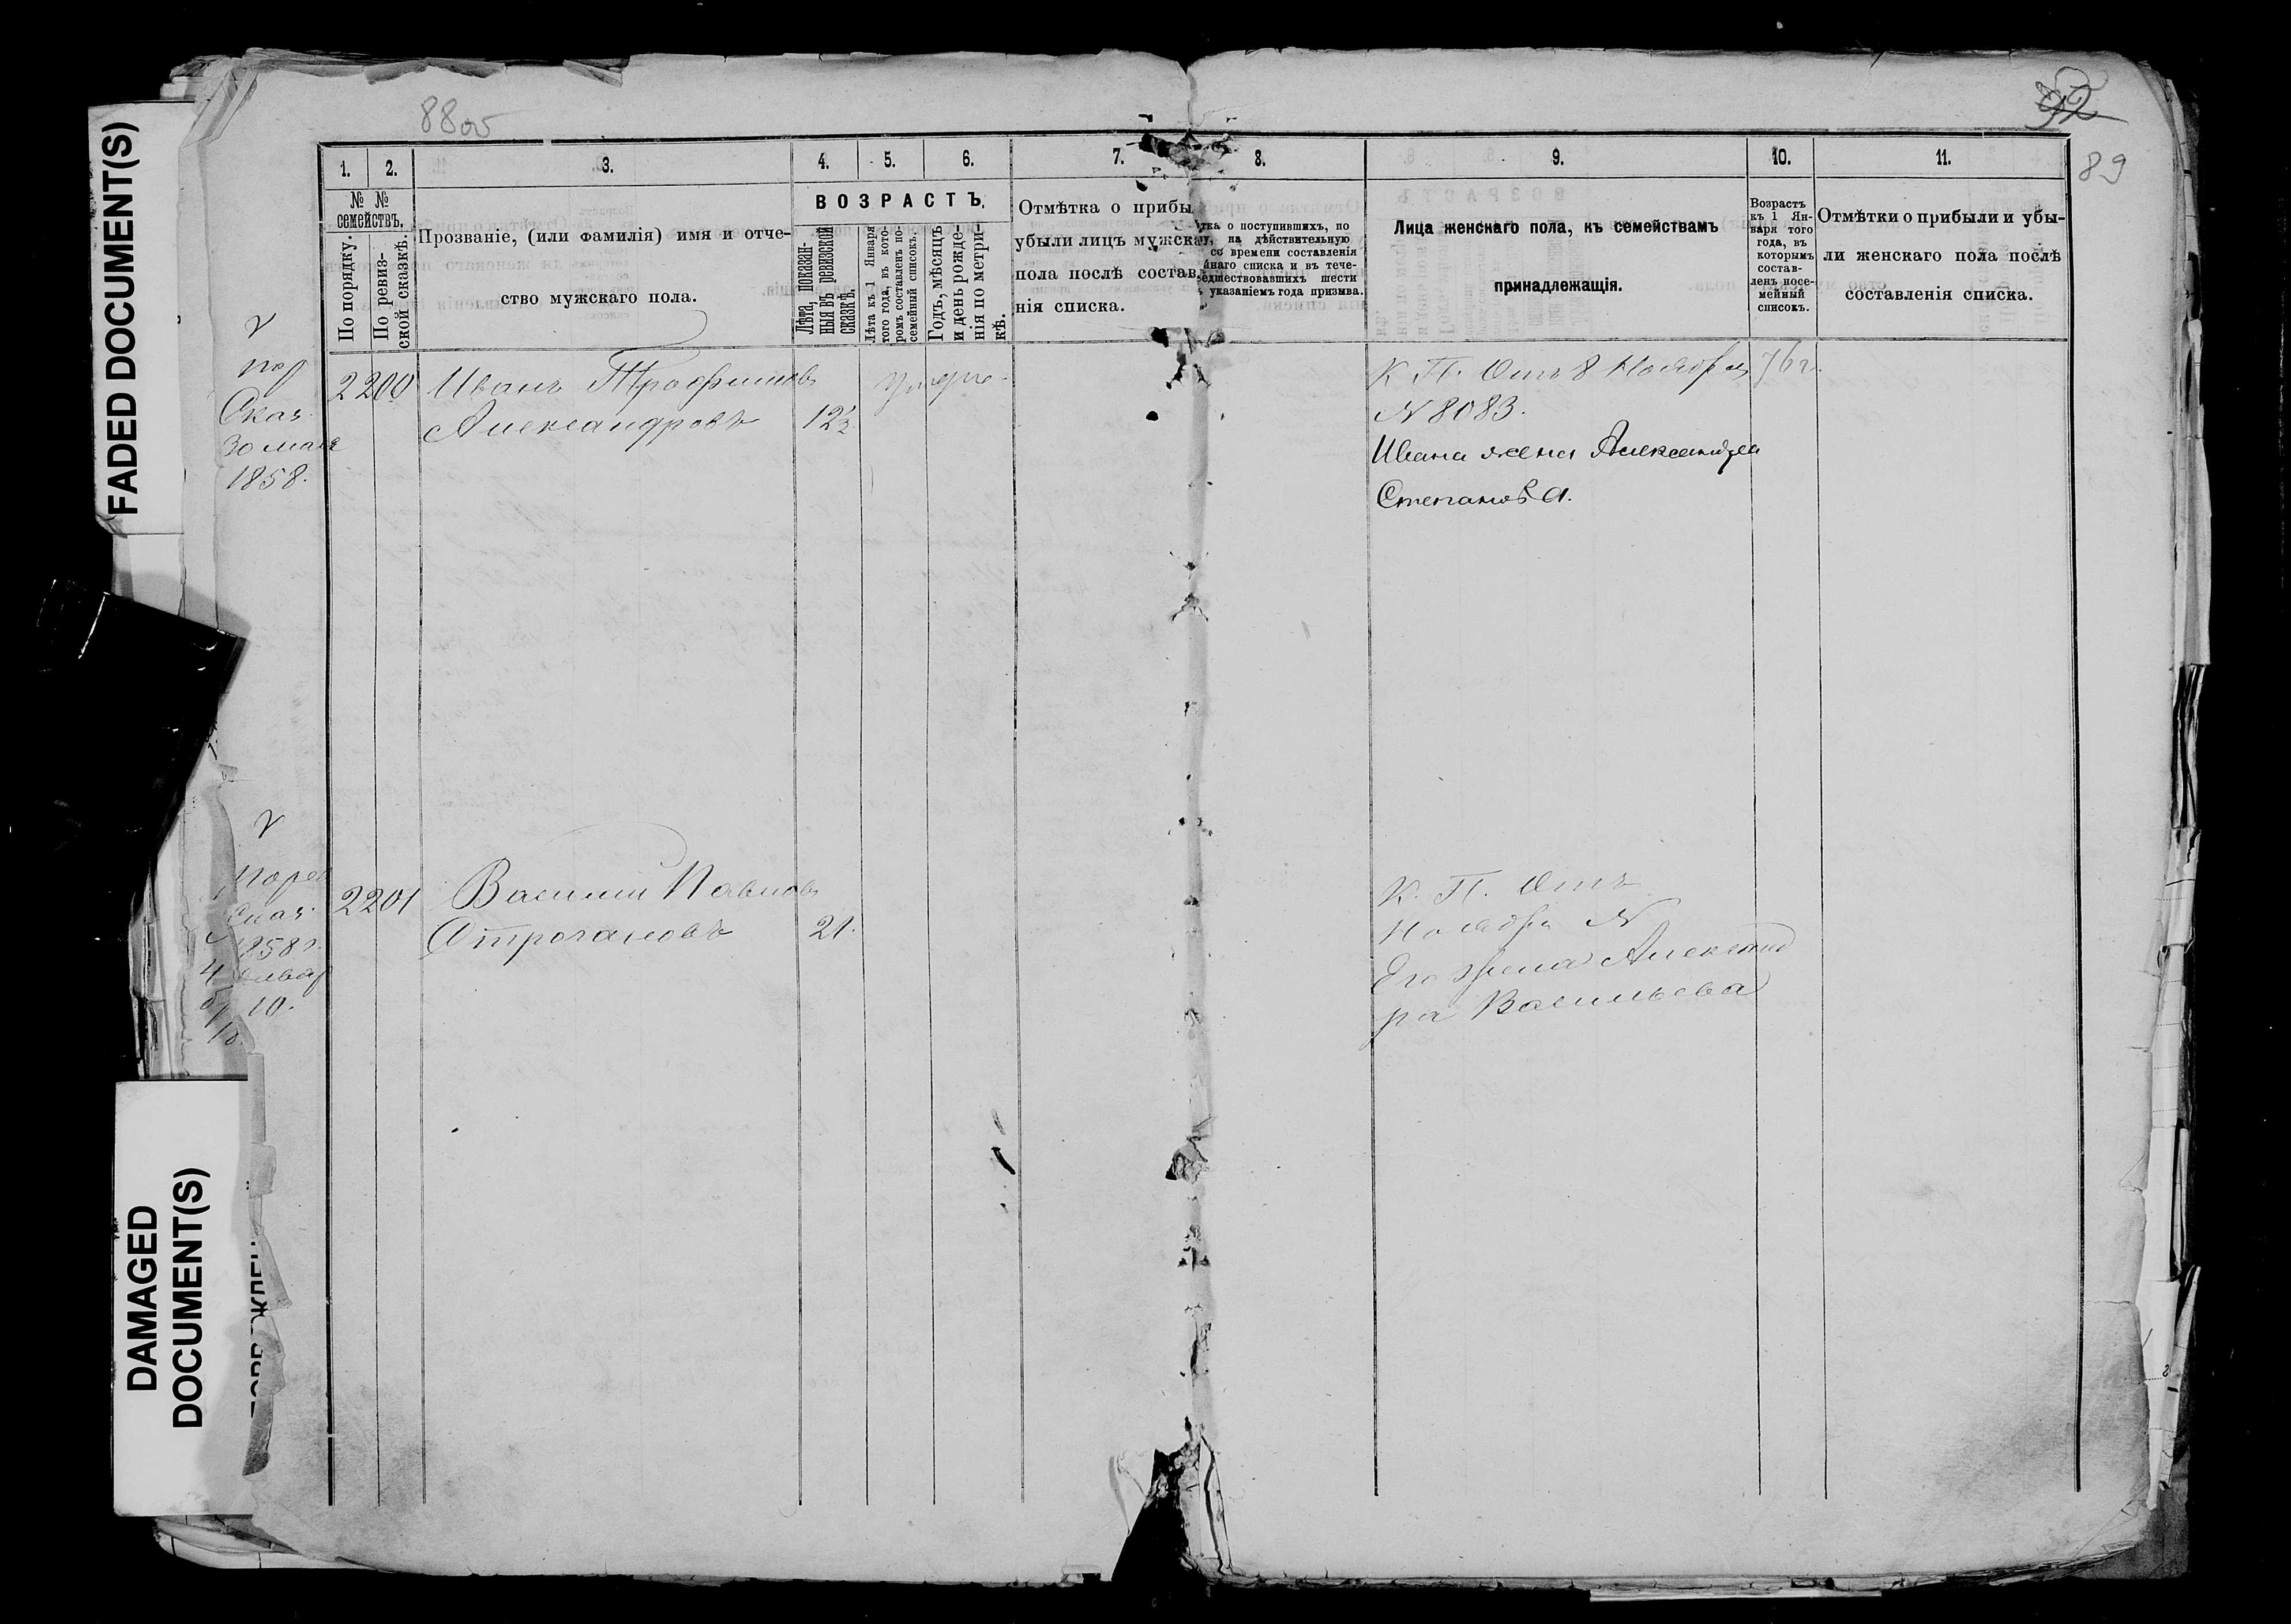 FADED DOCUMENT(S)
DAMAGED
DOCUMENT(S)
88об
92
89
1. 2. 3. 4. 5. 6. 7. 8. 9. 10. 11.
№ №
семействъ.
По порядку.
По ревиз-
ской сказкѣ.
Прозваніе, (или фамилія) имя и отче-
ство мужскаго пола.
ВОЗРАСТЪ.
Лѣта, показан-
ныя въ ревизской
сказкѣ.
Лѣта къ 1 Января
того года, въ кото-
ромъ составленъ по-
семейный списокъ.
Годъ, мѣсяцъ
и день рожде-
нія по метри-
кѣ.
Отмѣтка о прибы
убыли лицъ мужска
пола послѣ состав
нія списка.
тка о поступившихъ, по
у, на дѣйствительную
со времени составленія
йнаго списка и въ тече-
едшествовавшихъ шести
указаніемъ года призыва.
Лица женскаго пола, къ семействамъ
принадлежащія.
Возрастъ
къ 1 Ян-
варя того
года, въ
которымъ
состав-
ленъ посе-
мейный
списокъ.
Отмѣтки о прибыли и убы-
ли женскаго пола послѣ
составленія списка.
Сказ.
30 мая
1858.
2200 Иванъ Трофимовъ
Александровъ 12½
К. П. Отъ 8 Ноября 76 г.
N 8083.
Ивана жена Александра
Степанова.
Сказ.
1858 г.
10.
2201 Василий Павловъ
Строгановъ 21.
К. П. Отъ
Ноября N
Его жена Александ
ра Васильева